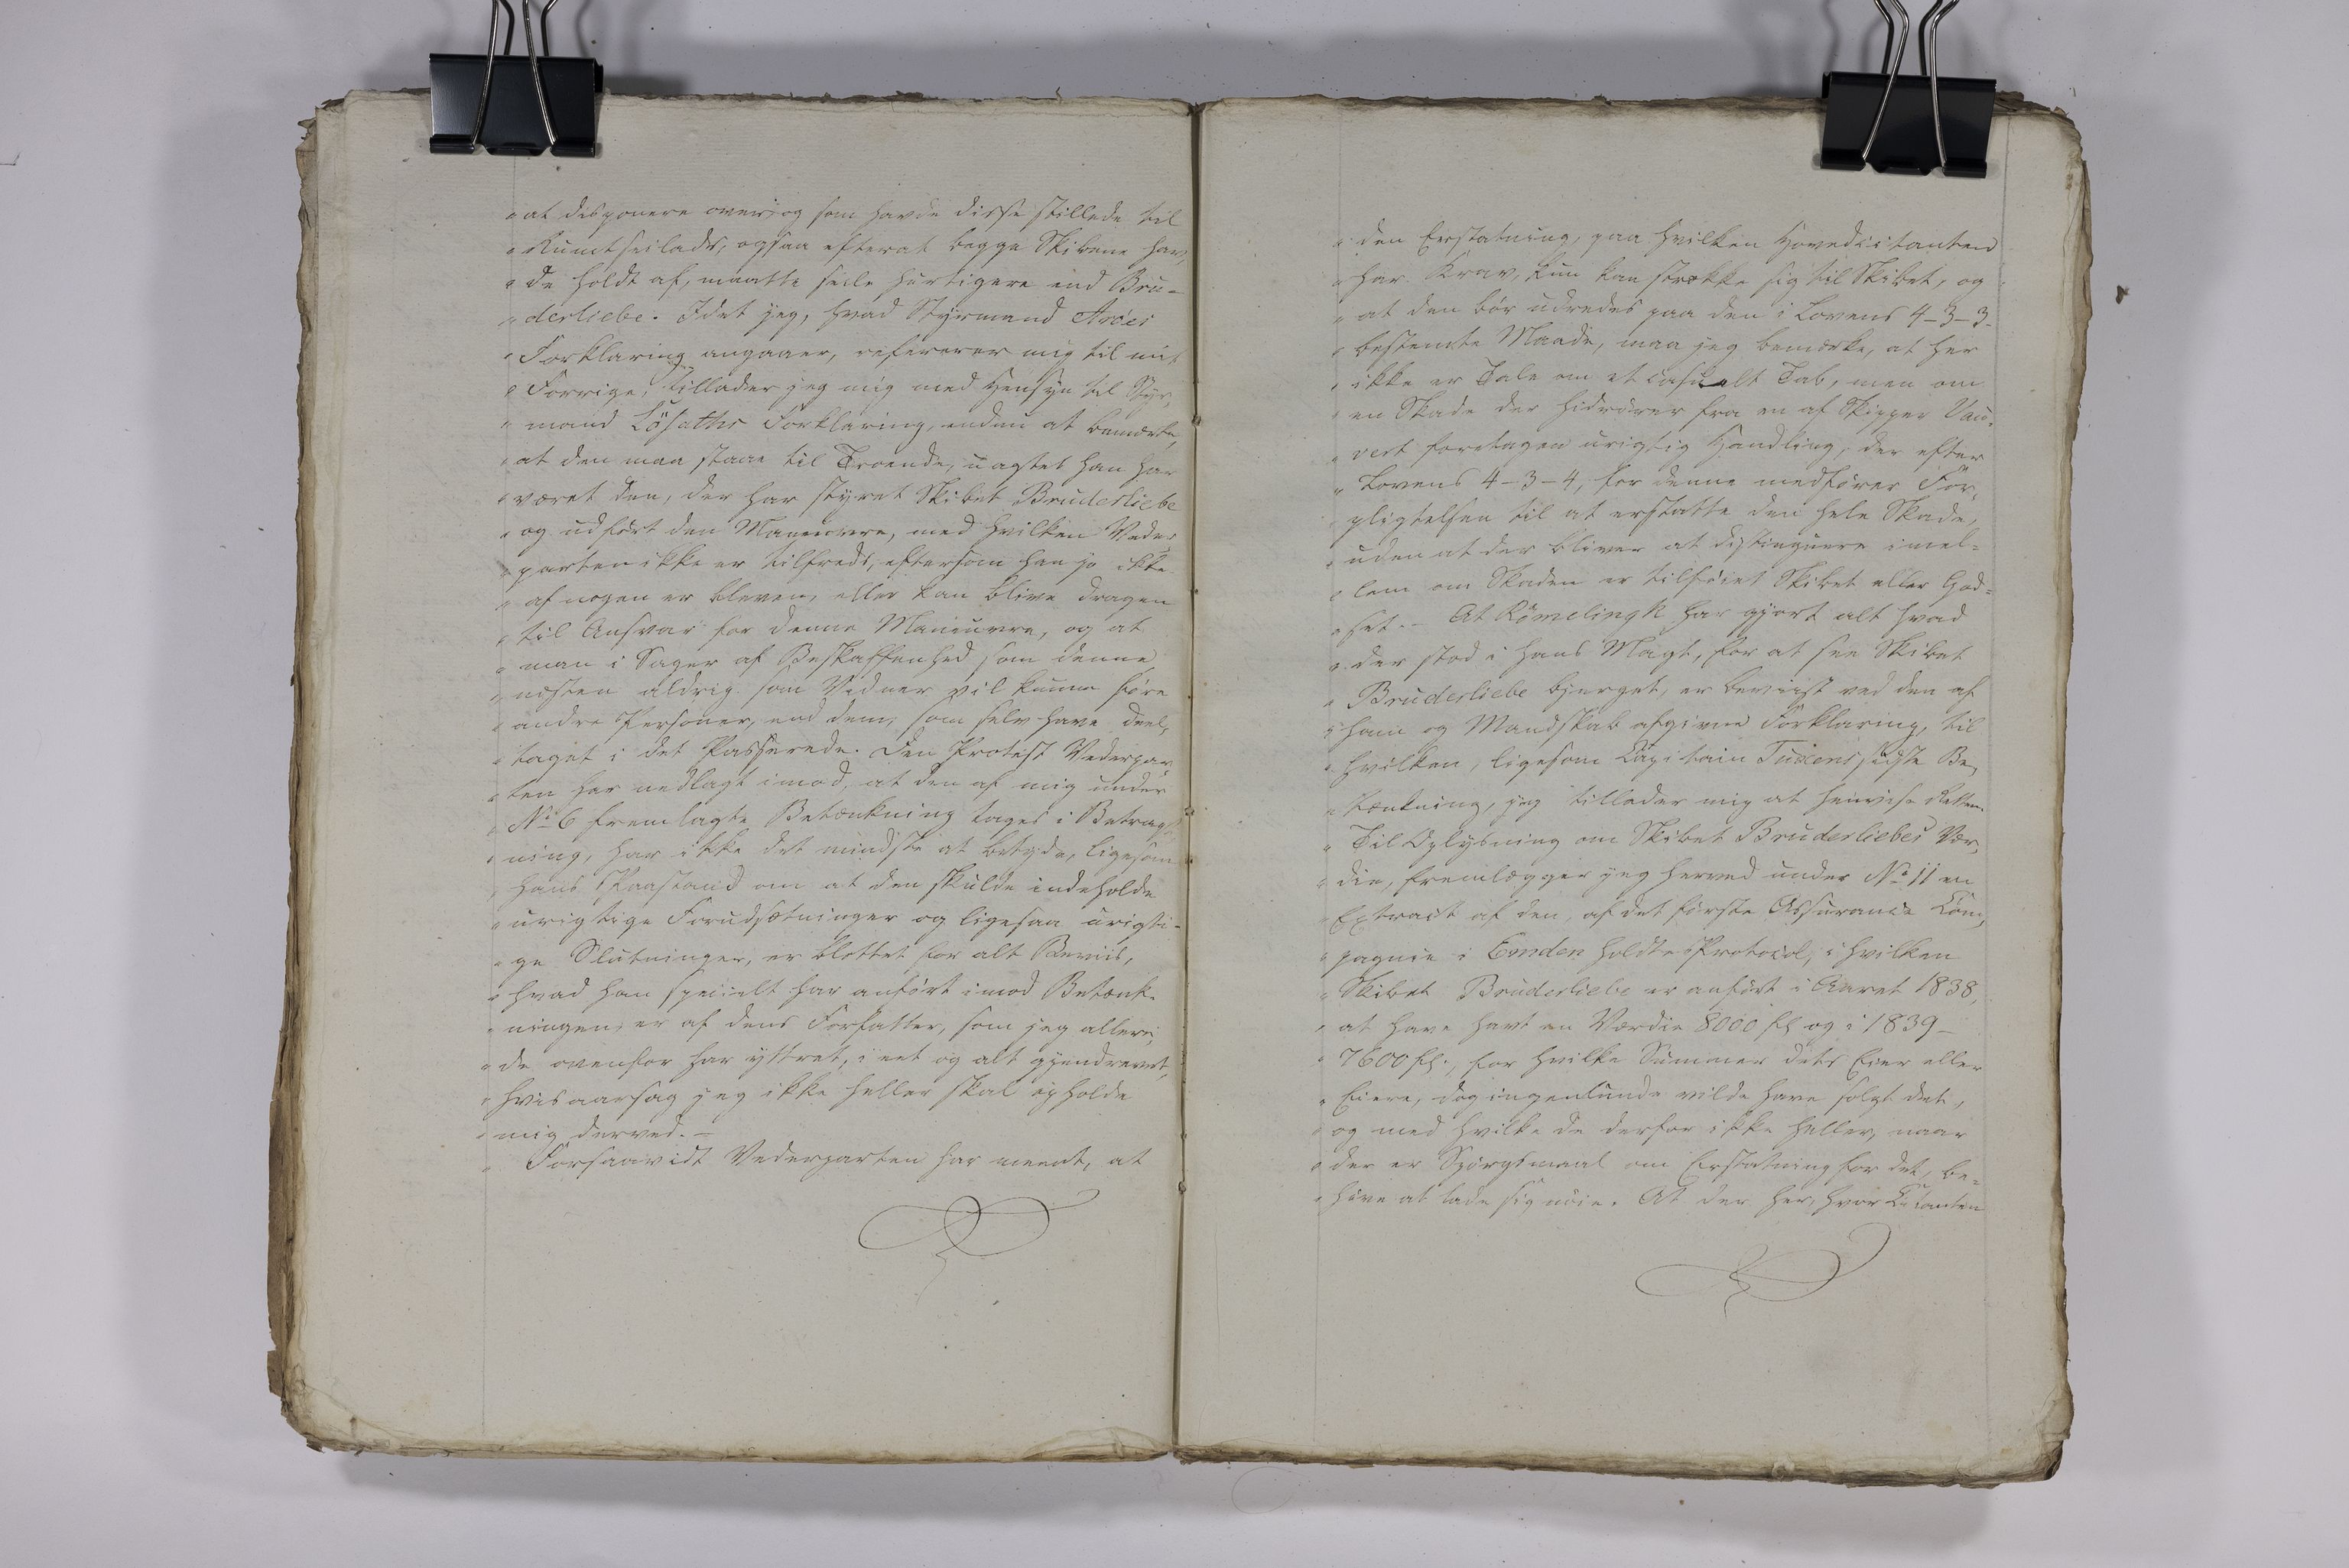 " at disponere over og som havde disse stillede til
" Rumtseilads, ogsaa efterat begge Skibene hav,
" de holdt af, maatte seile hurtigere end Brü-
" derliebe. Idet jeg, hvad Styrmand Aröes
" Forklaring angaaer, refererer mig til mit
" Forrige, tillader jeg mig med Hensyn til Styr,
" mand Lösaths Forklaring, endnu at bemærke,
" at den maa staae til Troende, uagtet han har
" været den, der har styret Skibet Brüderliebe
" og udført den Manoeuvre, med hvilken Veder
" parten ikke er tilfreds, eftersom han jo ikke
" af nogen er bleven, eller kan blive dragen
" til Ansvar for denne Manoeuvre, og at
" man i Sager af Beskaffenhed som denne
" næsten aldrig som Vidner vil kunne føre
" andre Personer, end dem, som selv have deel,
" taget i det Passerede. Den Protest Vederpar
" ten har nedlagt imod, at den af mig under
" No 6 fremlagte Betænkning tages i Betragt
" ning, har ikke det mindste at betyde, ligesom
" hans Paastand om at den skulde indeholde
" urigtige Forudsætninger og ligesaa urigti-
" ge Slutninger, er blottet for alt Beviis,
" hvad han specielt har anført imod Betænk-
" ningen, er af dens Forfatter, som jeg allere,
" de ovenfor har yttret, i eet og alt gjendrevet,
" hvisaarsag jeg ikke heller skal opholde
" mig derved. –
" Forsaavidt Vederparten har meent, at
" den Erstatning, paa hvilken Hovedcitanten
" har Krav, kun kan strække sig til Skibet, og
" at den bør udredes paa den i Lovens 4-3-3.
" bestemte Maade, maa jeg bemærke, at her
" ikke er Tale om et casuelt Tab, men om
" en Skade der hidrører fra en af Skipper Vau,
" vert foretagen urigtig Handling, der efter
" Lovens 4-3-4, for denne medfører For,
" pligtelsen til at erstatte den hele Skade,
" uden at der bliver at distinguere imel-
" lem om Skaden er tilføiet Skibet eller God-
" set. – At Römelingk har gjort alt hvad
" der stod i hans Magt, for at see Skibet
" Brüderliebe bjerget, er beviist ved den af
" ham og Mandskab afgivne Forklaring, til
" hvilken, ligesom Capitain Tuxens sidste Be,
" tænkning, jeg tillader mig at henvise Retten.
" Til Oplysning om Skibet Brüderliebes Vær,
" die, fremlægger jeg herved under No 11 en
" Extract af den, af det første Assurance Com,
" pagnie i Emden holdte Protocol, i hvilken
" Skibet Brüderliebe er anført i Aaret 1838,
" at have havt en Værdie 8000 fl og i 1839 –
" 7600 fl., for hvilke Summer dets Eier eller
" Eiere, dog ingenlunde vilde have solgt det,
" og med hvilke de derfor ikke heller, naar
" der er Spørgsmaal om Erstatning for det, be-
" høve at lade sig nøie. At der her, hvor Citanten